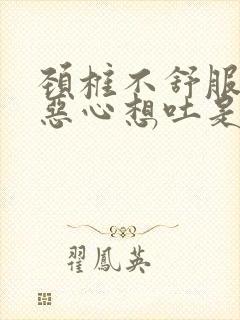 頚椎不舒服
惡心想吐是
翟鳳英